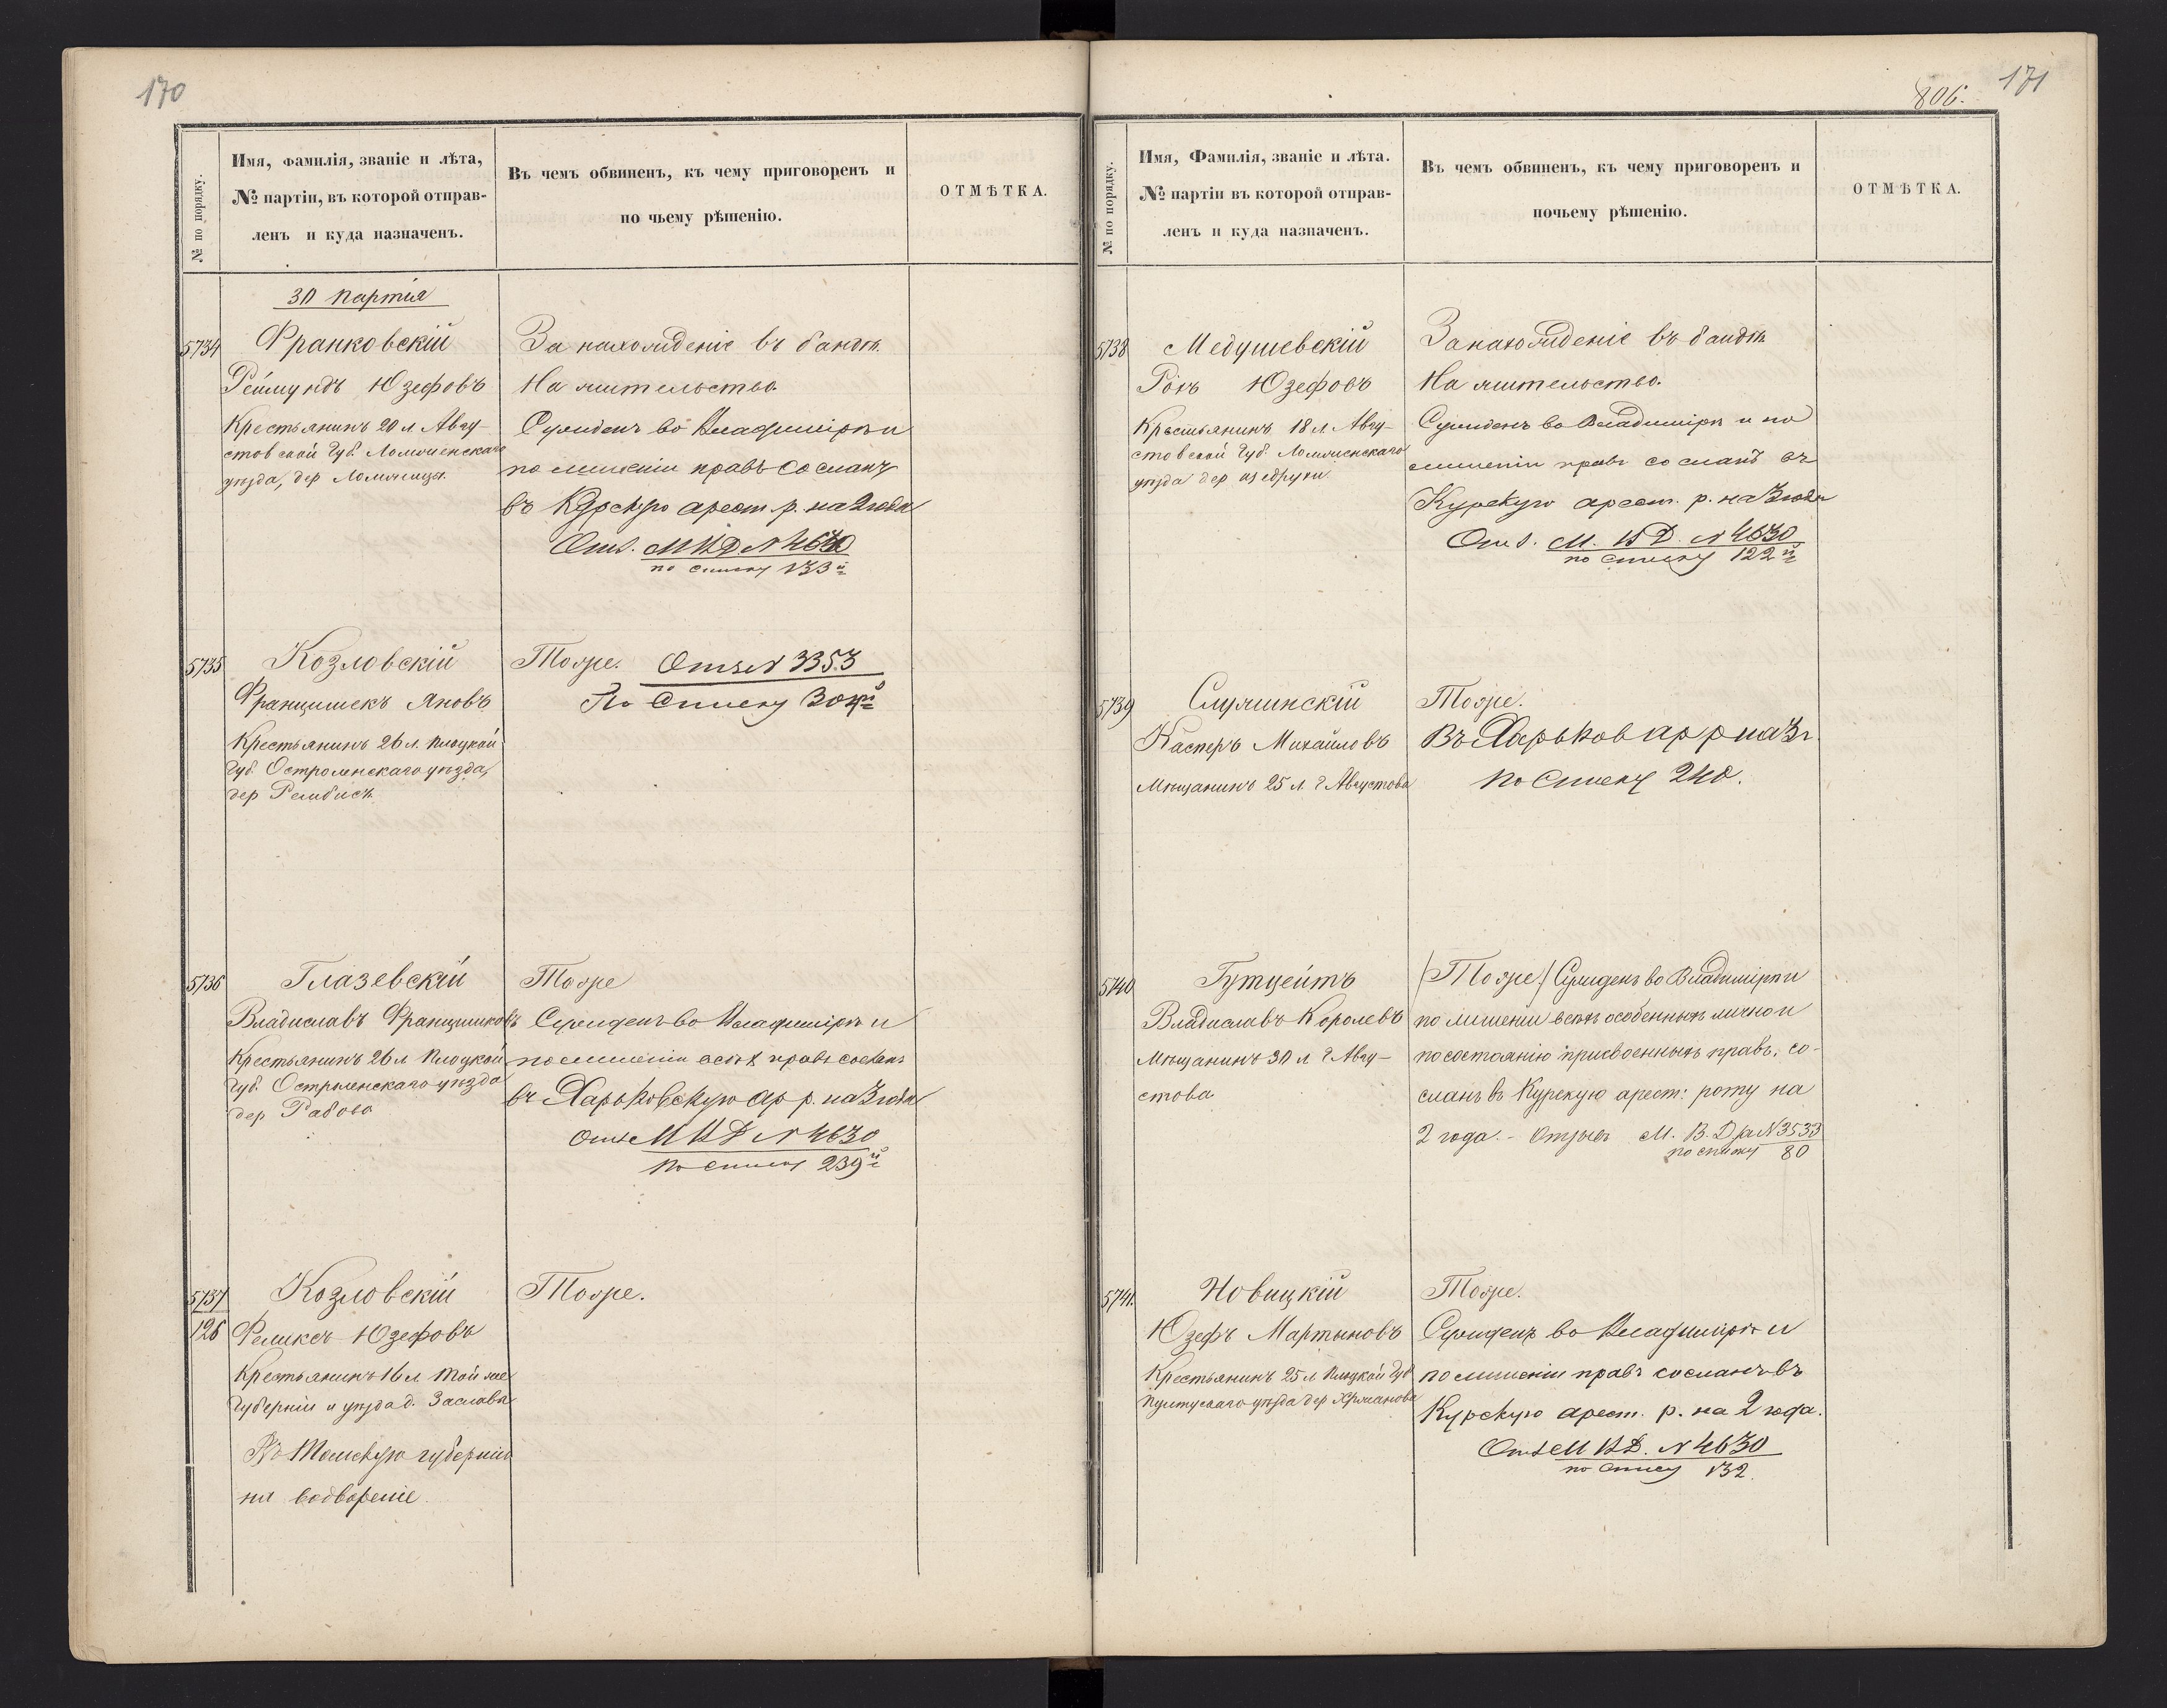 170
№ по порядку.
Имя, фамилія, званіе и лѣта,
№ партіи, въ которой отправ-
ленъ и куда назначенъ.
Въ чемъ обвиненъ, къ чему приговоренъ и
по чьему рѣшенію.
ОТМѢТКА.
30 партія
5734
Франковскій
Реймундъ Юзефовъ
Крестьянинъ 20 л. Авгу-
стовской Губ. Ломженскаго
уѣзда, дер Ломжица.
За нахожденіе въ бандѣ.
На жительство.
Сужденъ во Владимірѣ и
по лишеніи правъ сосланъ
въ Курскую арест. р. на 2 года
Отз. М В Д № 4630
по списку 133й
5735
Козловскій
Францишекъ Яновъ
Крестьянинъ 26 л. Плоцкой
Губ. Остроленскаго уѣзда,
дер Рембисъ.
Тоже. Отз № 3353
По Списку 30й
5736
Глазевскій
Владиславъ Францишковъ
Крестьянинъ 26 л Плоцкой
Губ. Остроленскаго уѣзда
дер Рабово
Тоже
Сужденъ во Владимірѣ и
по лишеніи всѣхъ правъ сосланъ
въ Харьковскую ар р. на 3 года
Отз М В Д № 4630
по списку 239й
5737
126
Козловскій
Феликсъ Юзефовъ
Крестьянинъ 16 л той же
Губерніи и уѣзда д. Заславы
Въ Томскую губернію
на водвореніе.
Тоже.
806.
171
№ по порядку.
Имя, Фамилія, званіе и лѣта.
№ партіи въ которой отправ-
ленъ и куда назначенъ.
Въ чемъ обвиненъ, къ чему приговоренъ и
почьему рѣшенію.
ОТМѢТКА.
5738
Медушевскій
Рохъ Юзефовъ
Крестьянинъ 18 л. Авгу-
стовской Губ. Ломженскаго
уѣзда дер
За нахожденіе въ бандѣ.
На жительство.
Сужденъ во Владимірѣ и по
лишеніи правъ сосланъ въ
Курскую арест. р. на 3 года
Отз. М. В Д. № 4630
по списку 122й
5739
Служинскій
Касперъ Михайловъ
Мѣщанинъ 25 л. г Августова
Тоже.
Въ Харьков ар р на 3 г.
По Списку 240.
5740
Гутцейтъ
Владиславъ Королевъ
Мѣщанинъ 30 л г Авгу-
стова
(Тоже) Сужденъ во Владимірѣ и
по лишеніи всѣхъ особенныхъ лично и
по состоянію присвоенныхъ правъ, со-
сланъ въ Курскую арест: роту на
2 года. - Отзывъ М. В. Д за № 3533
по списку 80
5741.
Новицкій
Юзефъ Мартыновъ
Крестьянинъ 25 л Плоцкой Губ
Пултускаго уѣзда дер
Тоже.
Сужденъ во Владимірѣ и
по лишеніи правъ сосланъ въ
Курскую арест. р. на 2 года.
Отз М В Д. № 4630
по списку 132.